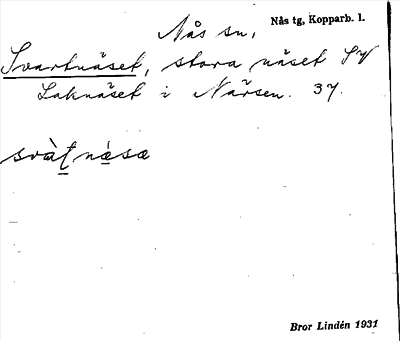 Nås sn, Nås tg, Kopparb. l.
Svartnäset, stora näset SV
Laknäset i Närsen. 37.
svàt næ̀sæ
Bror Lindén 1931